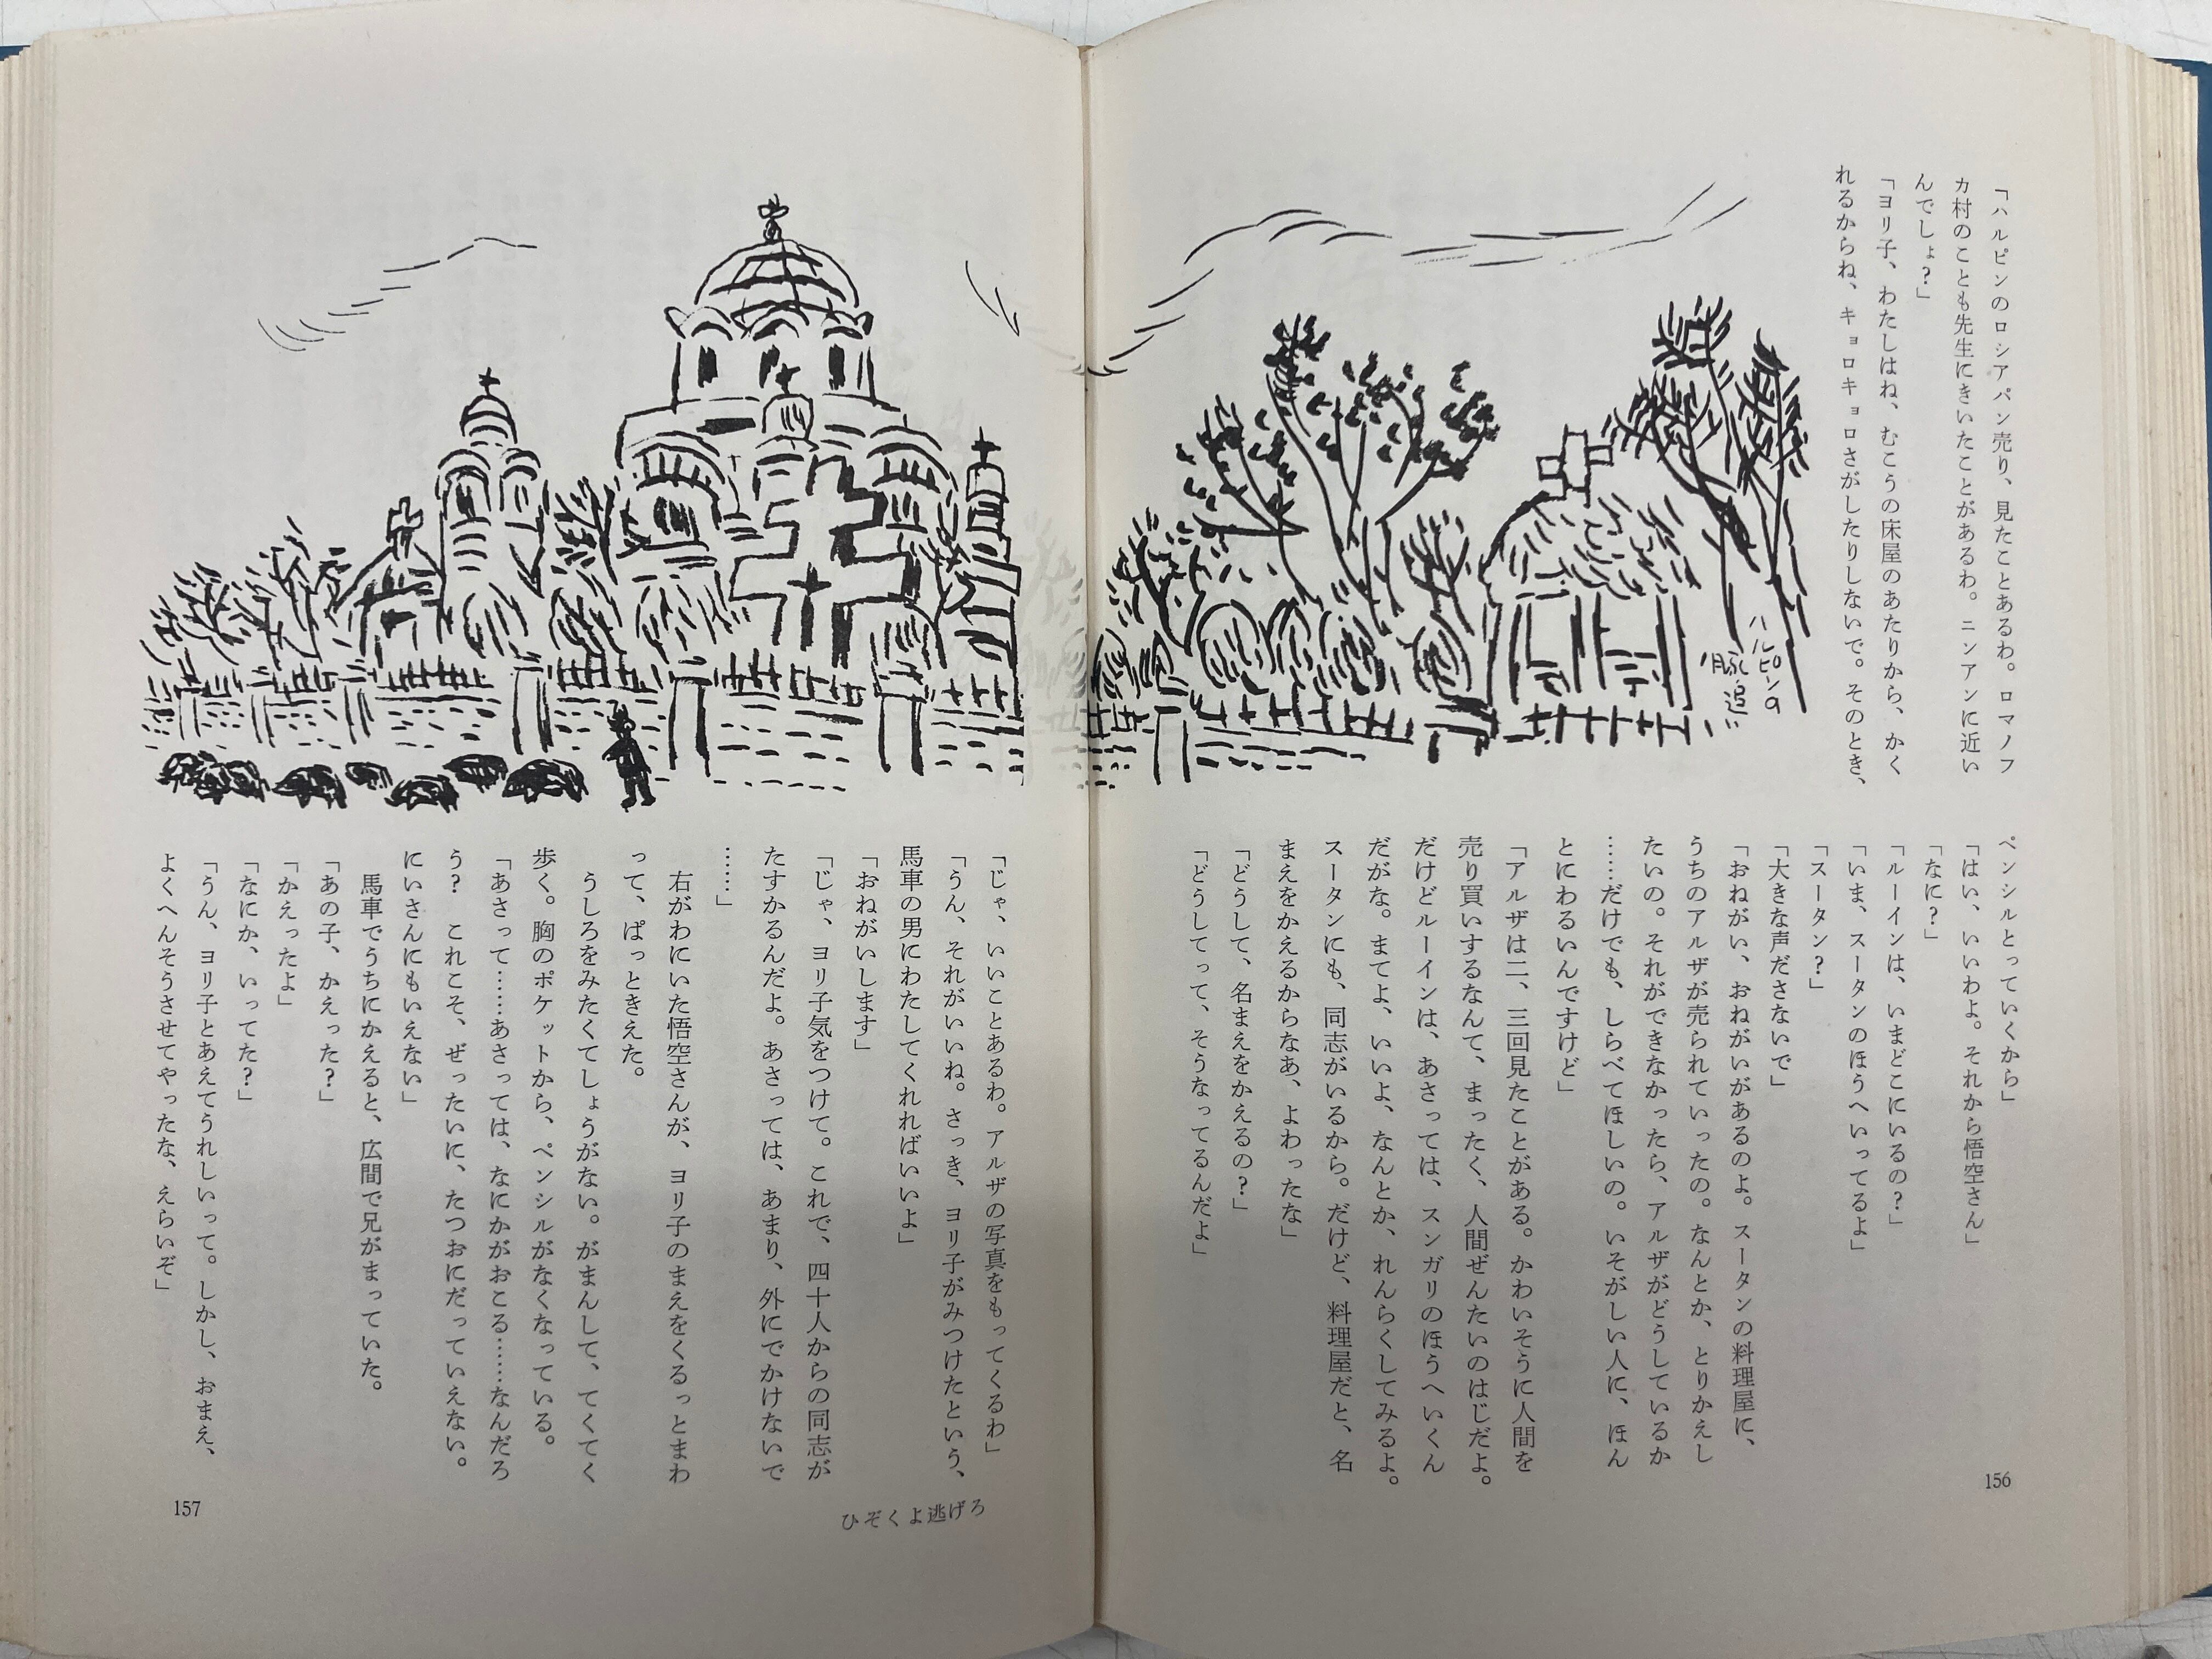 「ハルピンのロシアパン売り、見たことあるわ。ロマノフ
カ村のことも先生にきいたことがあるわ。ニンアンに近い
んでしょ？」
「ヨリ子、わたしはね、むこうの床屋のあたりから、かく
れるからね、キョロキョロさがしたりしないで。そのとき、
ハルピンの
豚追い
ペンシルとっていくから」
「はい、いいわよ。それから悟空さん」
「なに？」
「ルーインは、いまどこにいるの？」
「いま、スータンのほうへいってるよ」
「スータン？」
「大きな声ださないで」
「おねがい、おねがいがあるのよ。スータンの料理屋に、
うちのアルザが売られていったの。なんとか、とりかえし
たいの。それができなかったら、アルザがどうしているか
……だけでも、しらべてほしいの。いそがしい人に、ほん
とにわるいんですけど」
「アルザは二、三回見たことがある。かわいそうに人間を
売り買いするなんて、まったく、人間ぜんたいのはじだよ。
だけどルーインは、あさっては、スンガリのほうへいくん
だがな。まてよ、いいよ、なんとか、れんらくしてみるよ。
スータンにも、同志がいるから。だけど、料理屋だと、名
まえをかえるからなあ、よわったな」
「どうして、名まえをかえるの？」
「どうしてって、そうなってるんだよ」
156
「じゃ、いいことあるわ。アルザの写真をもってくるわ」
「うん、それがいいね。さっき、ヨリ子がみつけたという、
馬車の男にわたしてくれればいいよ」
「おねがいします」
「じゃ、ヨリ子気をつけて。これで、四十人からの同志が
たすかるんだよ。あさっては、あまり、外にでかけないで
……」
右がわにいた悟空さんが、ヨリ子のまえをくるっとまわ
って、ぱっときえた。
うしろをみたくてしょうがない。がまんして、てくてく
歩く。胸のポケットから、ペンシルがなくなっている。
「あさって……あさっては、なにかがおこる……なんだろ
う？　これこそ、ぜったいに、たつおにだっていえない。
にいさんにもいえない」
馬車でうちにかえると、広間で兄がまっていた。
「あの子、かえった？」
「かえったよ」
「なにか、いってた？」
「うん、ヨリ子とあえてうれしいって。しかし、おまえ、
よくへんそうさせてやったな、えらいぞ」
157
ひぞくよ逃げろ